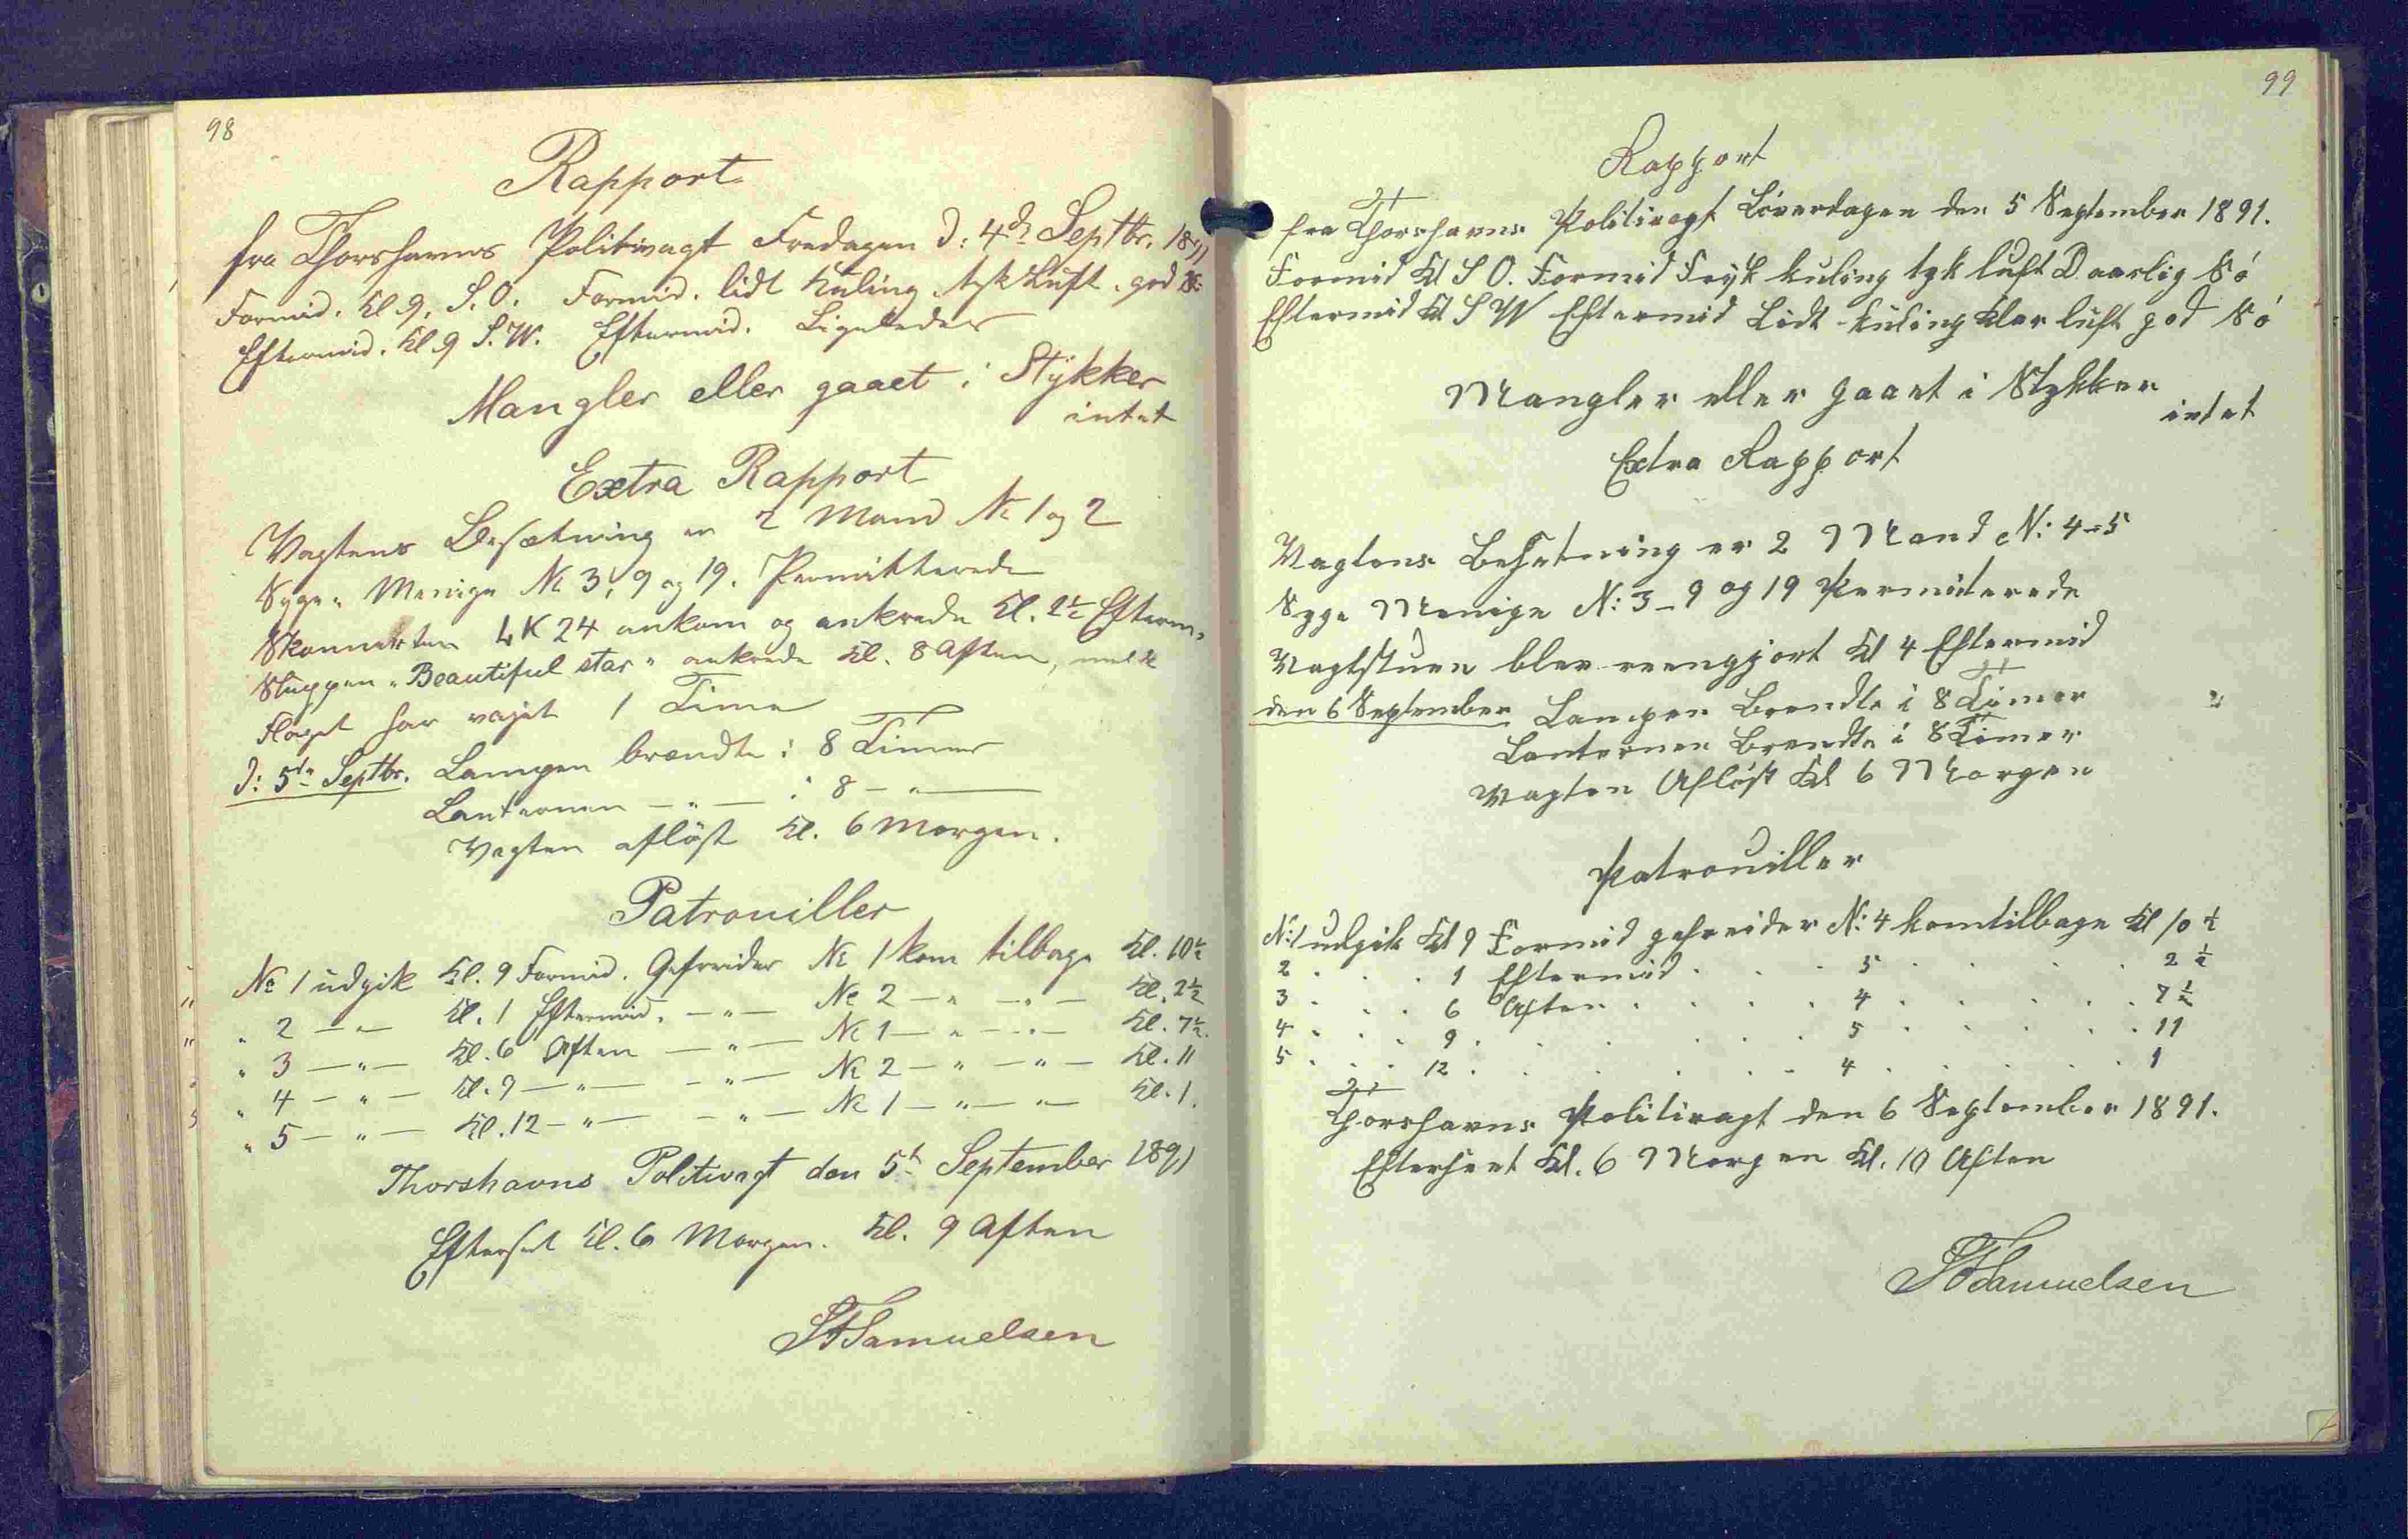 98
Rapport
fra Thorshavns Politivagt Fredagen d: 4de Septbr. 1891
Formid. Kl 9. S.O. Formid. lidt Kuling tyk Luft. god Sø
Eftermid. Kl 9 S.W. Eftermid. Ligeledes
Mangler eller gaaet i Stykker
intet
Extra Rapport
Vagtens Besætning er 2 Mand No 1 og 2
Syge: Menige No 3, 9 og 19. Permitterede
Skonnerten LK 24 ankom og ankrede Kl. 2½ Efterm.
Sluppen "Beautiful star" ankrede Kl. 8 Aften,
Flaget har vajet 1 Time
d: 5te Septbr. Lampen brændte i 8 Timer
Lanternen — " — i 8 — " —
Vagten afløst Kl. 6 Morgen.
Patrouiller
No 1 udgik Kl. 9 Formid. Gefreider No 1 kom tilbage Kl. 10½
" 2 — " — Kl. 1 Eftermid. — " — No 2 — " — " — Kl. 2½
" 3 — " — Kl. 6 Aften — " — No 1 — " — " — Kl. 7½.
" 4 — " — Kl. 9 — " — — " — No 2 — " — " — Kl. 11
" 5 — " — Kl. 12 — " — — " — No 1 — " — " — Kl. 1.
Thorshavns Politivagt den 5te September 1891
Efterset Kl. 6 Morgen. Kl. 9 Aften
Samuelsen
99
Rapport
fra Thorshavns Politivagt Löverdagen den 5 September 1891.
Formid Kl S O. Formid Frysk kuling tyk luft Daarlig Sö
Eftermid Kl S W Eftermid Lidt kuling Klar luft god Sö
Mangler eller gaaet i Stykker
intet
Extra Rapport
Vagtens Besetning er 2 Mand N: 4-5
Syge Menige N: 3 - 9 og 19 Permiterede
Vagtstuen blev reengjort Kl 4 Eftermid
den 6 September Lampen Brendte i 8 Timer
Lanternen Brendte i 8 Timer
Vagten Aflöst Kl 6 Morgen
Patrouiller
N: 1 udgik Kl 9 Formid gefreider N: 4 kom tilbage Kl 10 ½
2 . . . 1 Eftermid . . . 5 . . . . 2 ½
3 . . . 6 Aften . . . . 4 . . . . 7 ½
4 . . . 9 . . . . . 5 . . . . 11
5 . . . 12 . . . . . 4 . . . . 1
Thorshavns Politivagt den 6 September 1891.
Efterseet Kl. 6 Morgen Kl. 10 Aften
Samuelsen